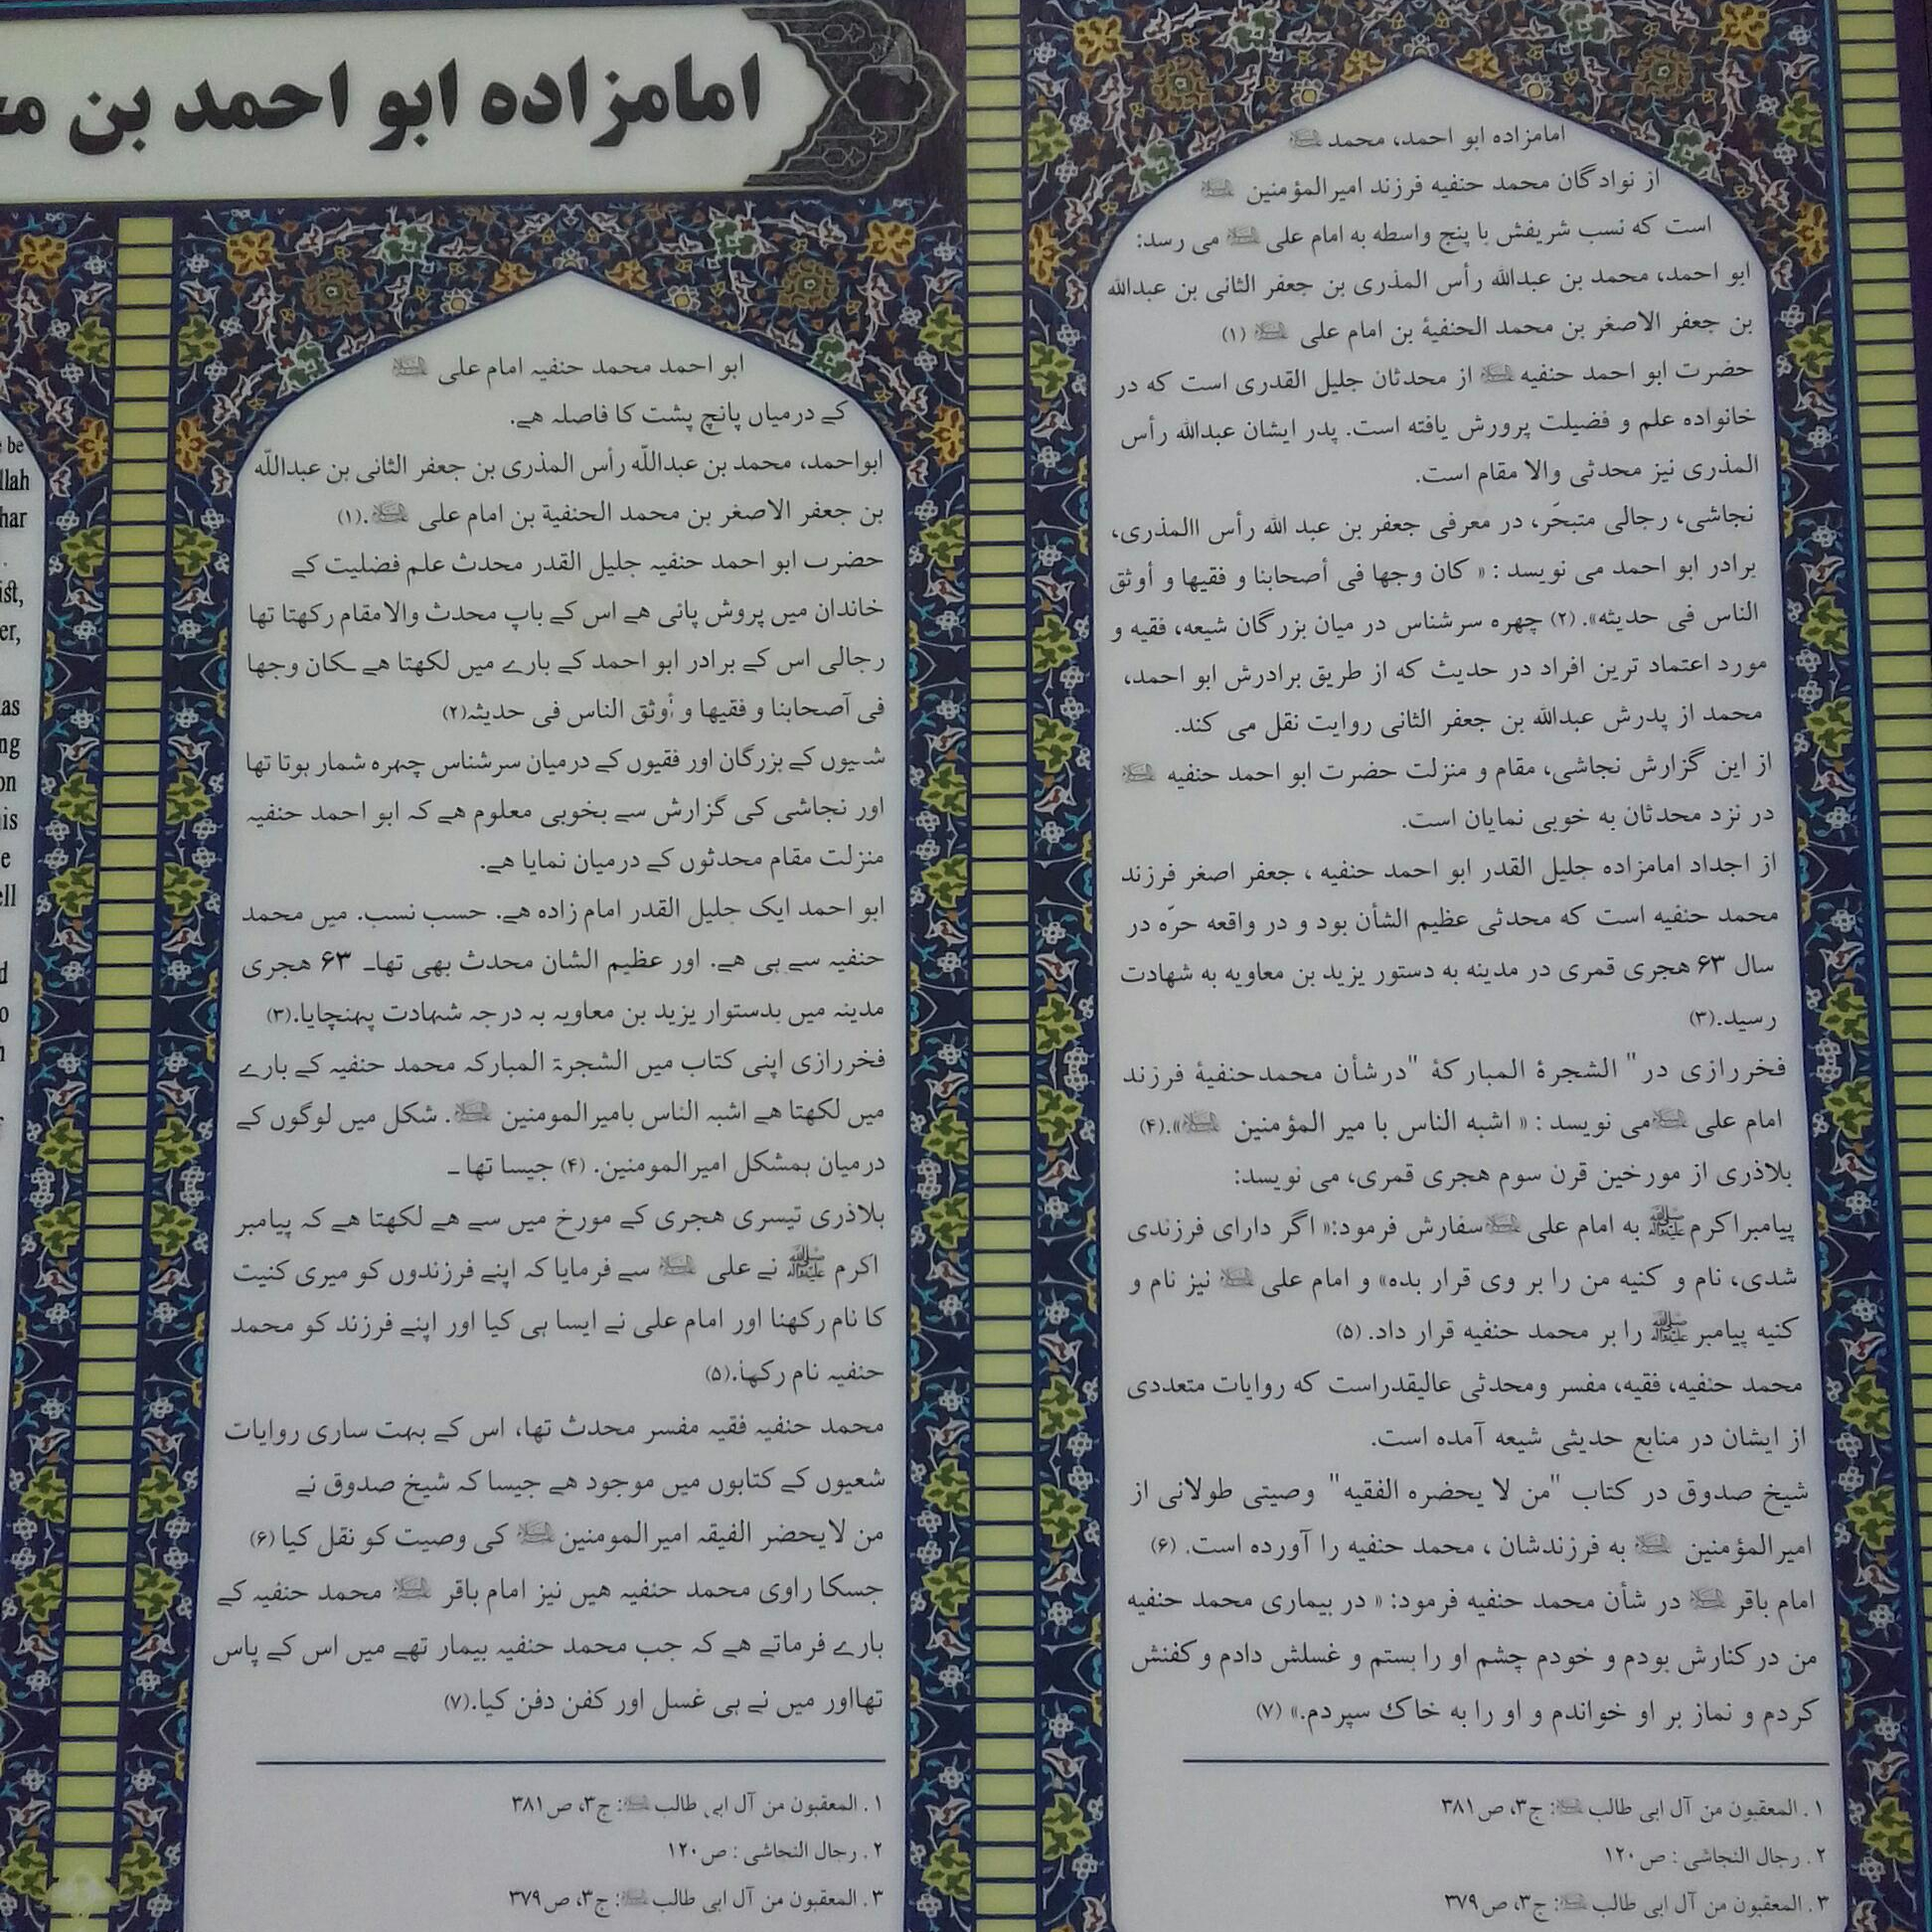 امامزاده ابو احمد بن
امامزاده ابو احمد، محمد
از نوادگان محمد حنفیه فرزند امیرالمؤمنین
است که نسب شریفش با پنج واسطه به امام علی می رسد:
ابو احمد، محمد بن عبدالله رأس المذری بن جعفر الثانی بن عبدالله
بن جعفر الاصغر بن محمد الحنفیۀ بن امام علی (۱)
حضرت ابو احمد حنفیه از محدثان جلیل القدری است که در
خانواده علم و فضیلت پرورش یافته است. پدر ایشان عبدالله رأس
المذری نیز محدثی والا مقام است.
نجاشی، رجالی متبحّر، در معرفی جعفر بن عبد الله رأس االمذری،
برادر ابو احمد می نویسد : « کان وجها فی أصحابنا و فقیها و أوثق
الناس فی حدیثه». (۲) چهره سرشناس در میان بزرگان شیعه، فقیه و
مورد اعتماد ترین افراد در حدیث که از طریق برادرش ابو احمد،
محمد از پدرش عبدالله بن جعفر الثانی روایت نقل می کند.
از این گزارش نجاشی، مقام و منزلت حضرت ابو احمد حنفیه
در نزد محدثان به خوبی نمایان است.
از اجداد امامزاده جلیل القدر ابو احمد حنفیه ، جعفر اصغر فرزند
محمد حنفیه است که محدثی عظیم الشأن بود و در واقعه حرّه در
سال ۶۳ هجری قمری در مدینه به دستور یزید بن معاویه به شهادت
رسید.(۳)
فخررازی در" الشجرۀ المبارکۀ "درشأن محمدحنفیۀ فرزند
امام علی می نویسد : « اشبه الناس با میر المؤمنین ».(۴)
بلاذری از مورخین قرن سوم هجری قمری، می نویسد:
پیامبراکرم ﷺ به امام علی سفارش فرمود:« اگر دارای فرزندی
شدی، نام و کنیه من را بر وی قرار بده» و امام علی نیز نام و
کنیه پیامبر ﷺ را بر محمد حنفیه قرار داد. (۵)
محمد حنفیه، فقیه، مفسر ومحدثی عالیقدراست که روایات متعددی
از ایشان در منابع حدیثی شیعه آمده است.
شیخ صدوق در کتاب "من لا یحضره الفقیه" وصیتی طولانی از
امیرالمؤمنین به فرزندشان ، محمد حنفیه را آورده است. (۶)
امام باقر در شأن محمد حنفیه فرمود: « در بیماری محمد حنفیه
من در کنارش بودم و خودم چشم او را بستم و غسلش دادم و کفنش
کردم و نماز بر او خواندم و او را به خاک سپردم.» (۷)
۱ . المعقبون من آل ابی طالب : ج۳، ص۳۸۱
۲ . رجال النجاشی : ص۱۲۰
۳ . المعقبون من آل ابی طالب : ج۳، ص۳۷۹
ابو احمد محمد حنفیہ امام علی
کے درمیاں پانچ پشت کا فاصلہ ھے.
ابواحمد، محمد بن عبداللّه رأس المذری بن جعفر الثانی بن عبداللّه
بن جعفر الاصغر بن محمد الحنفیة بن امام علی .(۱)
حضرب ابو احمد حنفیہ جلیل القدر محدث علم فضلیت کے
خاندان میں پروش پائی ھے اس کے باپ محدث والا مقام رکھتا تھا
رجالی اس کے برادر ابو احمد کے بارے میں لکھتا ھے کان وجھا
فی آصحابنا و فقیھا و أوثق الناس فی حدیثہ(۲)
شیوں کے بزرگان اور فقیوں کے درمیان سرشناس چہرہ شمار ہوتا تھا
اور نجاشی کی گزارش سے بخوبی معلوم ھے کہ ابو احمد حنفیہ
منزلت مقام محدثوں کے درمیان نمایا ھے.
ابو احمد ایک جلیل القدر امام زادہ ھے. حسب نسب. میں محمد
حنفیہ سے ہی ھے. اور عظیم الشان محدث بھی تھاـ ۶۳ ھجری
مدینہ میں بدستوار یزید بن معاویہ بہ درجہ شہادت پہنچایا.(۳)
فخررازی اپنی کتاب میں الشجرۃ المبارکہ محمد حنفیہ کے بارے
میں لکھتا ھے اشبہ الناس بامیرالمومنین . شکل میں لوگوں کے
درمیان ہمشکل امیرالمومنین. (۴) جیسا تھا ـ
بلاذری تیسری ھجری کے مورخ میں سے ھے لکھتا ھے کہ پیامبر
اکرم ﷺ نے علی سے فرمایا کہ اپنے فرزندوں کو میری کنیت
کا نام رکھنا اور امام علی نے ایسا ہی کیا اور اپنے فرزند کو محمد
حنفیہ نام رکھا.(۵)
محمد حنفیہ فقیہ مفسر محدث تھا، اس کے بہت ساری روایات
شعیوں کے کتابوں میں موجود ھے جیسا کہ شیخ صدوق نے
من لایحضر الفیقہ امیرالمومنین کی وصیت کو نقل کیا (۶)
جسکا راوی محمد حنفیہ ھیں نیز امام باقر محمد حنفیہ کے
بارے فرماتے ھے کہ جب محمد حنفیہ بیمار تھے میں اس کے پاس
تھااور میں نے ہی غسل اور کفن دفن کیا.(۷)
۱ . المعقبون من آل ابی طالب : ج۳، ص۳۸۱
۲ . رجال النجاشی : ص۱۲۰
۳ . المعقبون من آل ابی طالب : ج۳، ص۳۷۹
be